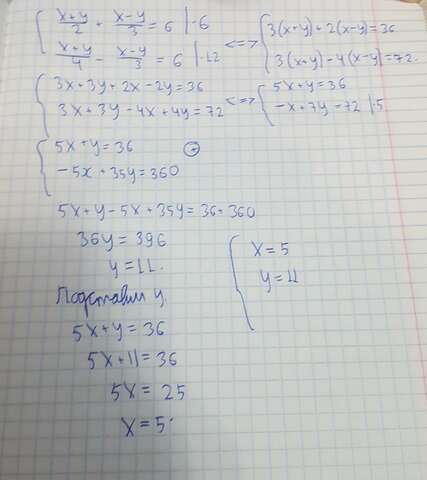 (x+y)/2 + (x-y)/3 = 6 |·6 <=> 3(x+y)+2(x-y)=36
(x+y)/4 - (x-y)/3 = 6 |·12 3(x+y)-4(x-y)=72.
3x+3y+2x-2y=36 <=> 5x+y=36
3x+3y-4x+4y=72 -x+7y=72 |·5
5x+y=36 +
-5x+35y=360
5x+y-5x+35y=36+360
36y=396
y=11.
Подставим y.
5x+y=36
5x+11=36
5x=25
x=5.
x=5
y=11